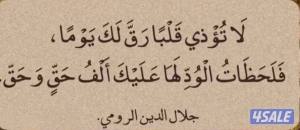 لَا تُؤْذِي قَلْبًا رَقَّ لَكَ يَوْمًا،
فَلَحَظَاتُ الْوُدِّ لَهَا عَلَيْكَ أَلْفُ حَقٍّ وَحَقّ.
جلال الدين الرومي.
4SALE